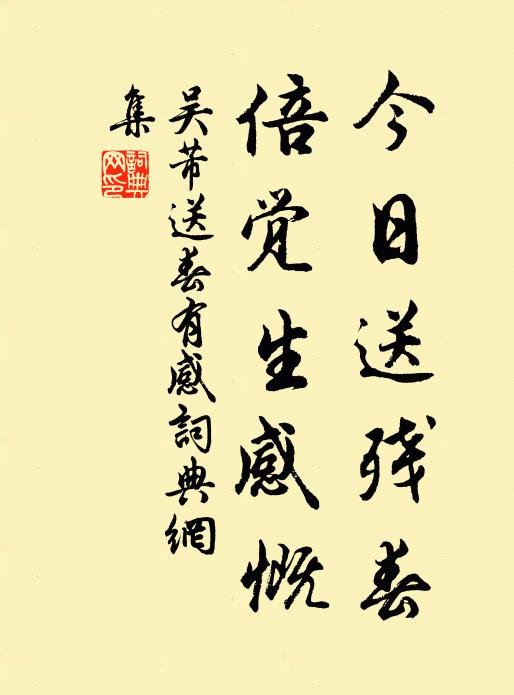 今日送残春
倍觉生感慨
吴芾送春有感詞典網
集
詞典
网印